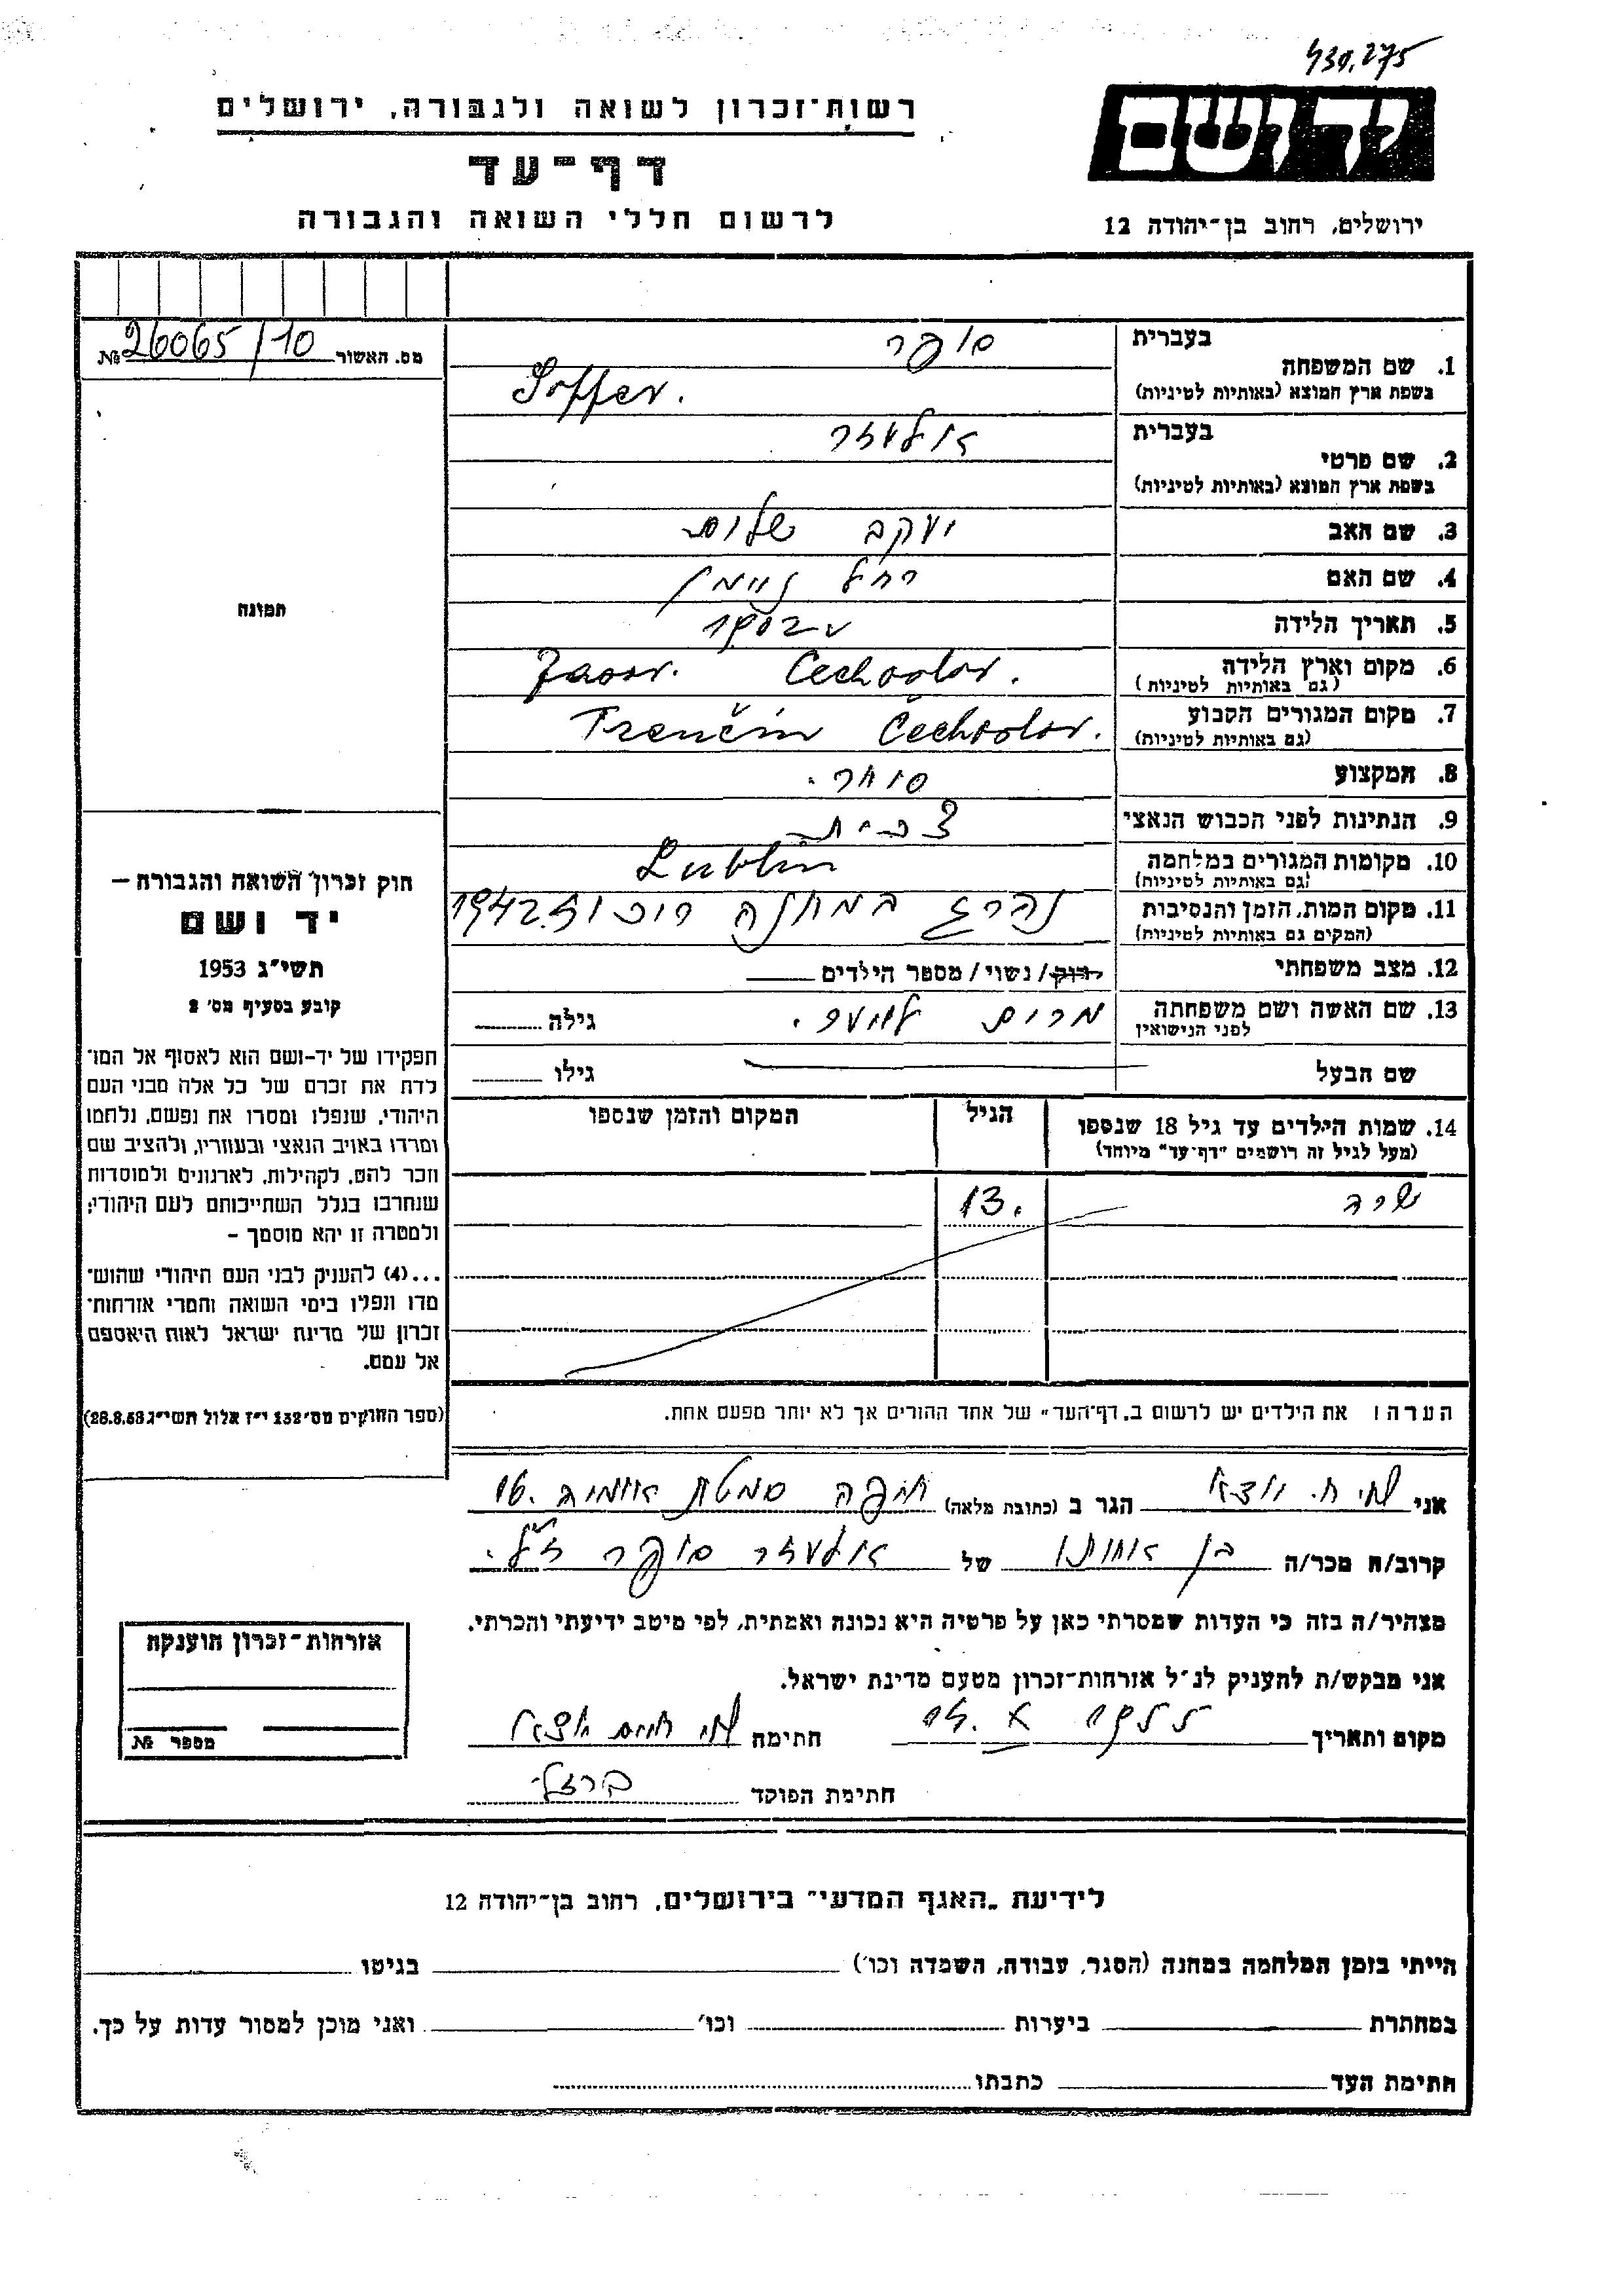 430.275
רשות־זכרון לשואה ולגבורה, ירושלים
יד ושם
דף־עד
לרשום חללי השואה והגבורה
ירושלים, רחוב בן־יהודה 12
מס. האשור № 26065/10
בעברית סופר
1. שם המשפחה
בשפת ארץ המוצא (באותיות לטיניות) Soffer.
בעברית אלעזר
2. שם פרטי
בשפת ארץ המוצא (באותיות לטיניות)
3. שם האב יעקב שלום
4. שם האם רחל ניימן
5. תאריך הלידה
6. מקום וארץ הלידה Cechoslov.
(גם באותיות לטיניות)
7. מקום המגורים הקבוע Trenčín Čechoslov.
(גם באותיות לטיניות)
8. המקצוע סוחר.
9. הנתינות לפני הכבוש הנאצי צכית
10. מקומות המגורים במלחמה Lublin
(גם באותיות לטיניות)
11. מקום המות, הזמן והנסיבות נהרג במחנה 1942
(המקום גם באותיות לטיניות)
12. מצב משפחתי רוק/נשוי/מספר הילדים
13. שם האשה ושם משפחתה מרים גילה
לפני הנישואין
שם הבעל גילו
14. שמות הילדים עד גיל 18 שנספו הגיל המקום והזמן שנספו
(מעל לגיל זה רושמים "דף־עד" מיוחד)
שרה 13.
הערה: את הילדים יש לרשום ב„דף־העד" של אחד ההורים אך לא יותר מפעם אחת.
תמונה
חוק זכרון השואה והגבורה —
יד ושם
תשי"ג 1953
קובע בסעיף מס' 2
תפקידו של יד-ושם הוא לאסוף אל המו־
לדת את זכרם של כל אלה מבני העם
היהודי, שנפלו ומסרו את נפשם, נלחמו
ומרדו באויב הנאצי ובעוזריו, ולהציב שם
וזכר להם, לקהילות, לארגונים ולמוסדות
שנחרבו בגלל השתייכותם לעם היהודי;
ולמטרה זו יהא מוסמך —
...(4) להעניק לבני העם היהודי שהוש־
מדו ונפלו בימי השואה והמרי אזרחות־
זכרון של מדינת ישראל לאות היאספם
אל עמם.
(ספר החוקים מס' 132 י"ז אלול תשי"ג 28.8.53)
אני הגר ב (כתובת מלאה) חיפה סמטת
קרוב/ה מכר/ה בן אחותו של אלעזר סופר ז"ל.
מצהיר/ה בזה כי העדות שמסרתי כאן על פרטיה היא נכונה ואמתית, לפי מיטב ידיעתי והכרתי.
אני מבקש/ת להעניק לנ"ל אזרחות־זכרון מטעם מדינת ישראל.
מקום ותאריך חתימה
חתימת הפוקד ברזלי
אזרחות־זכרון הוענקה
מספר №
לידיעת „האגף המדעי" בירושלים, רחוב בן־יהודה 12
הייתי בזמן המלחמה במחנה (הסגר, עבודה, השמדה וכו') בגיטו
במחתרת ביערות וכו' ואני מוכן למסור עדות על כך.
חתימת העד כתבתו